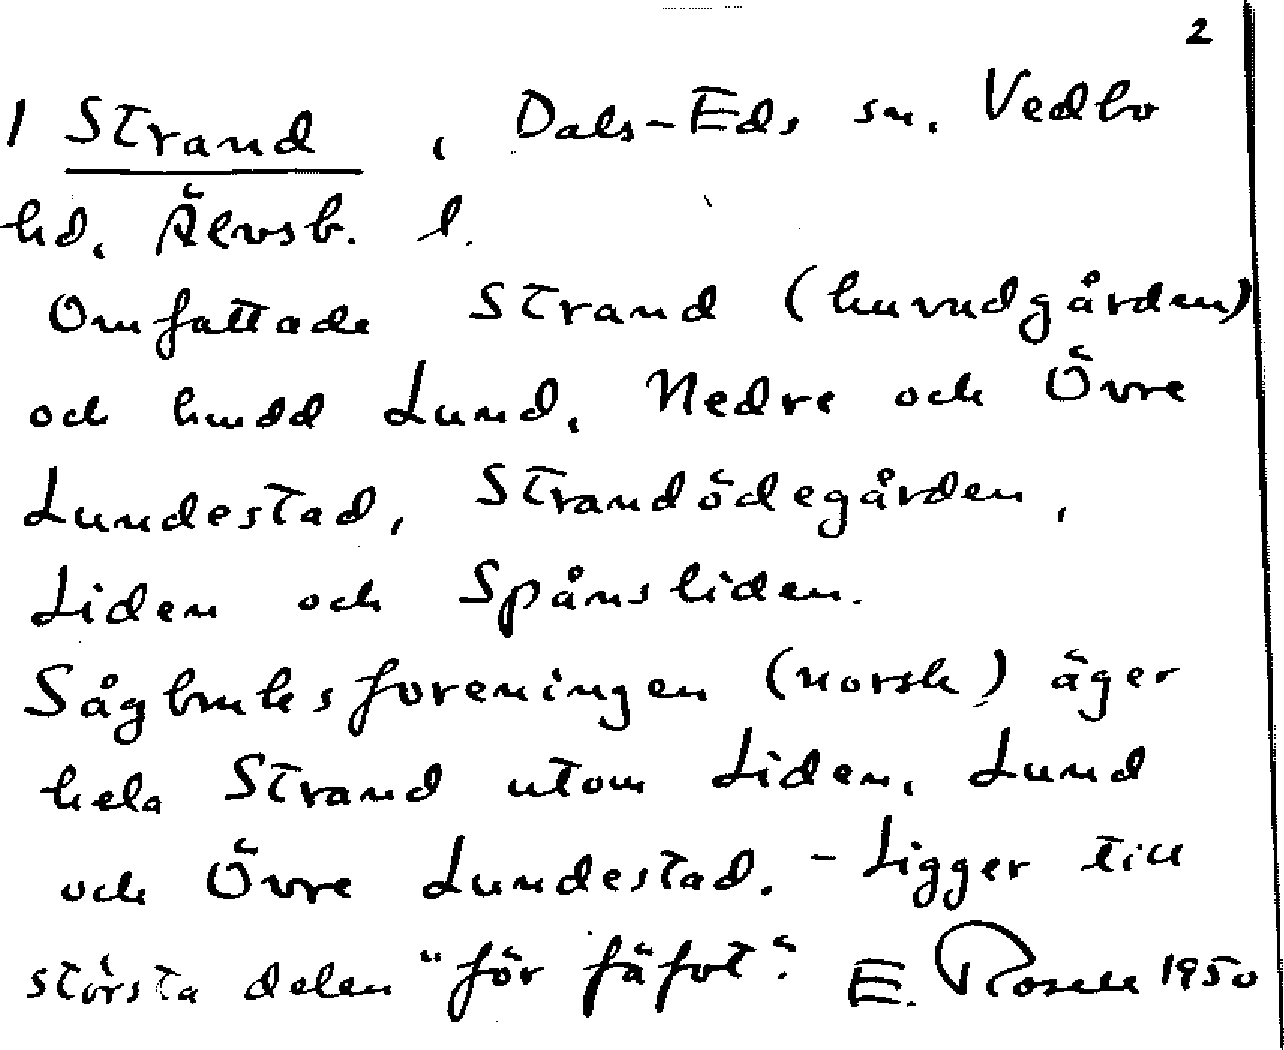 2
1 Strand, Dals-Eds sn. Vedbo
hd, Älvsb. l.
Omfattade Strand (huvudgården)
och hmdd Lund, Nedre och Övre
Lundestad, Strandödegården,
Liden och Spånsliden.
Sågbruksforeningen (norsk) äger
hela Strand utom Liden, Lund
och Övre Lundestad. - Ligger till
största delen "för fäfot". E. Rosell 1950